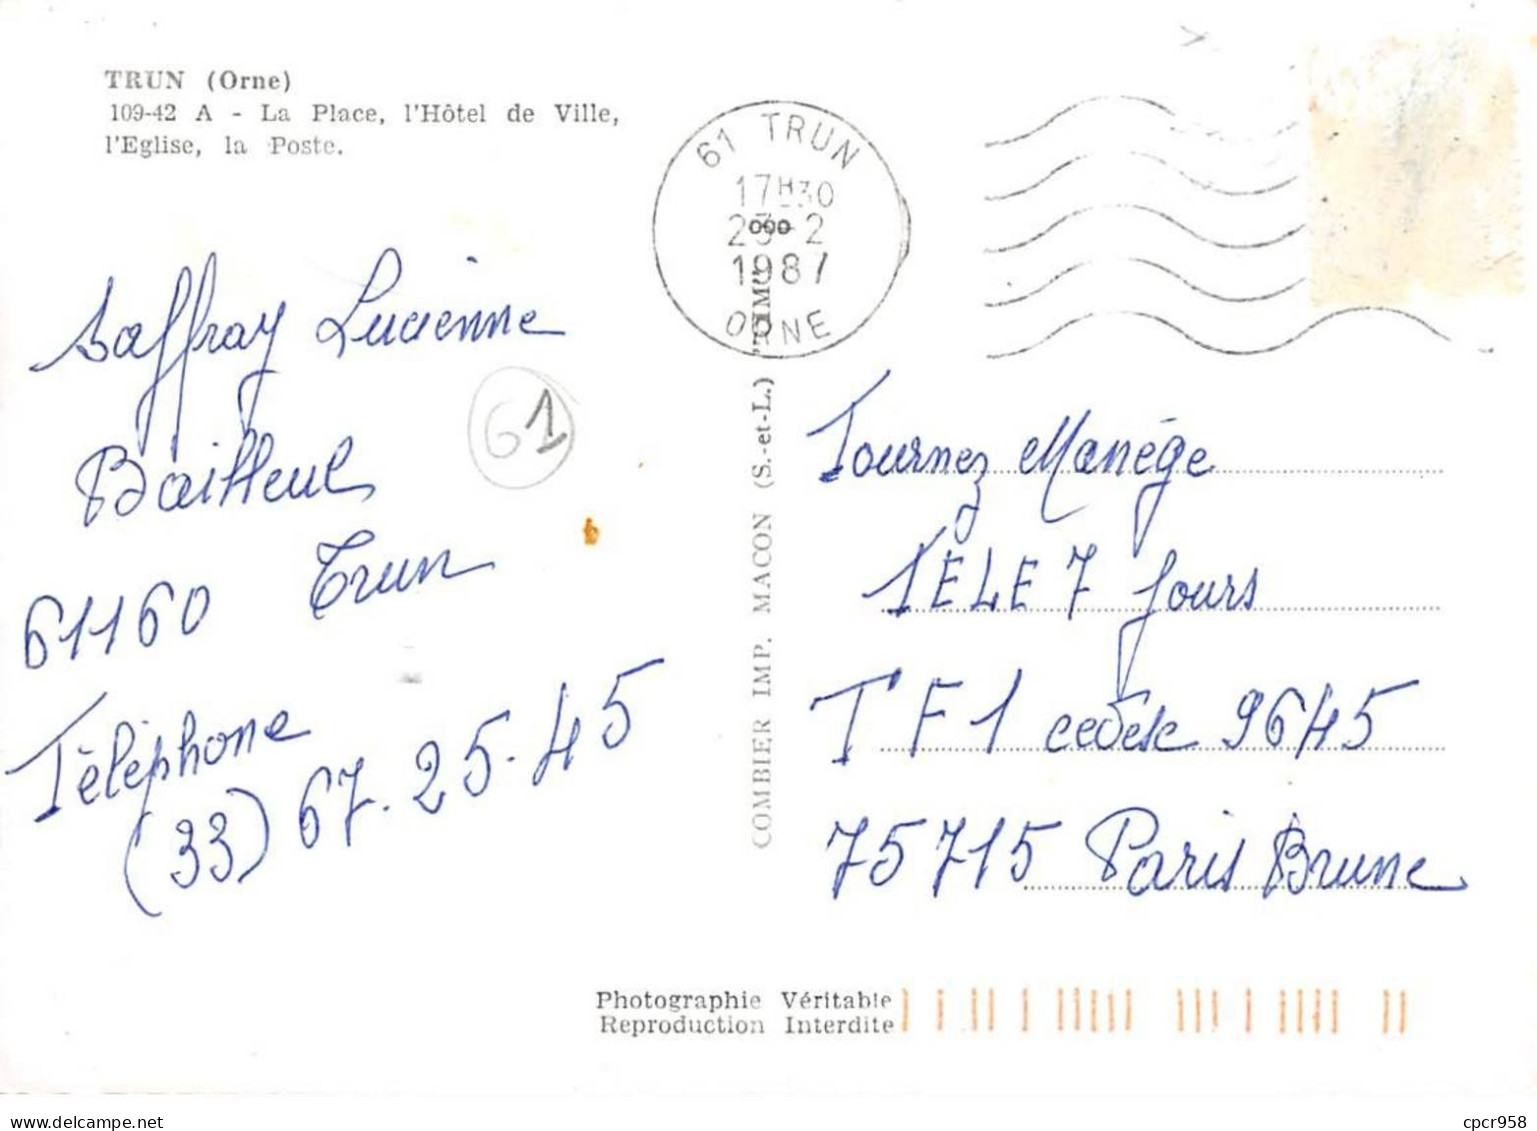 TRUN (Orne)
109-42 A - La Place, l'Hôtel de Ville,
l'Eglise, la Poste.
61 TRUN
17H30
23-2
1987
ORNE
Saffray Lucienne
Bailleul
61160 Trun
Téléphone
(33) 67.25.45
61
COMBIER IMP. MACON (S.-et-L.)
Tournez Manége
TELE 7 Jours
TF1 cedex 9645
75715 Paris Brune
Photographie Véritable
Reproduction Interdite
cpcr958